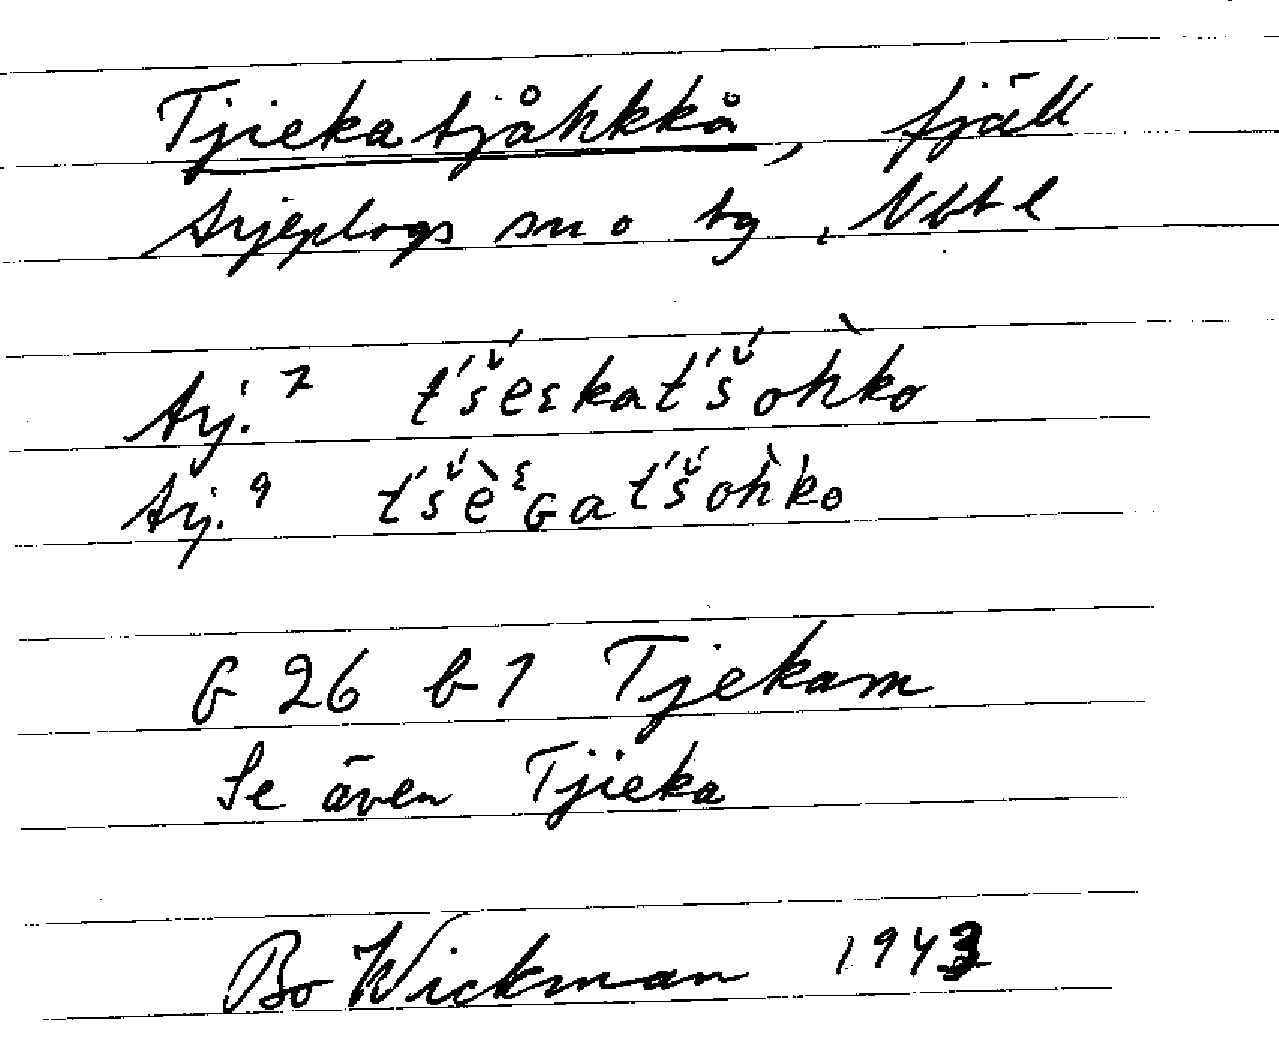 Tjiekatjåhkkå, fjäll
Arjeplogs sn o tg, Nbtl
Arj. 7 t́š́eɛkat́š́ohkò
Arj. 9 t́š́èᵋGat́š́oh̀k̀o
G 26 b 1 Tjekam
Se även Tjieka
Bo Wickman 1943